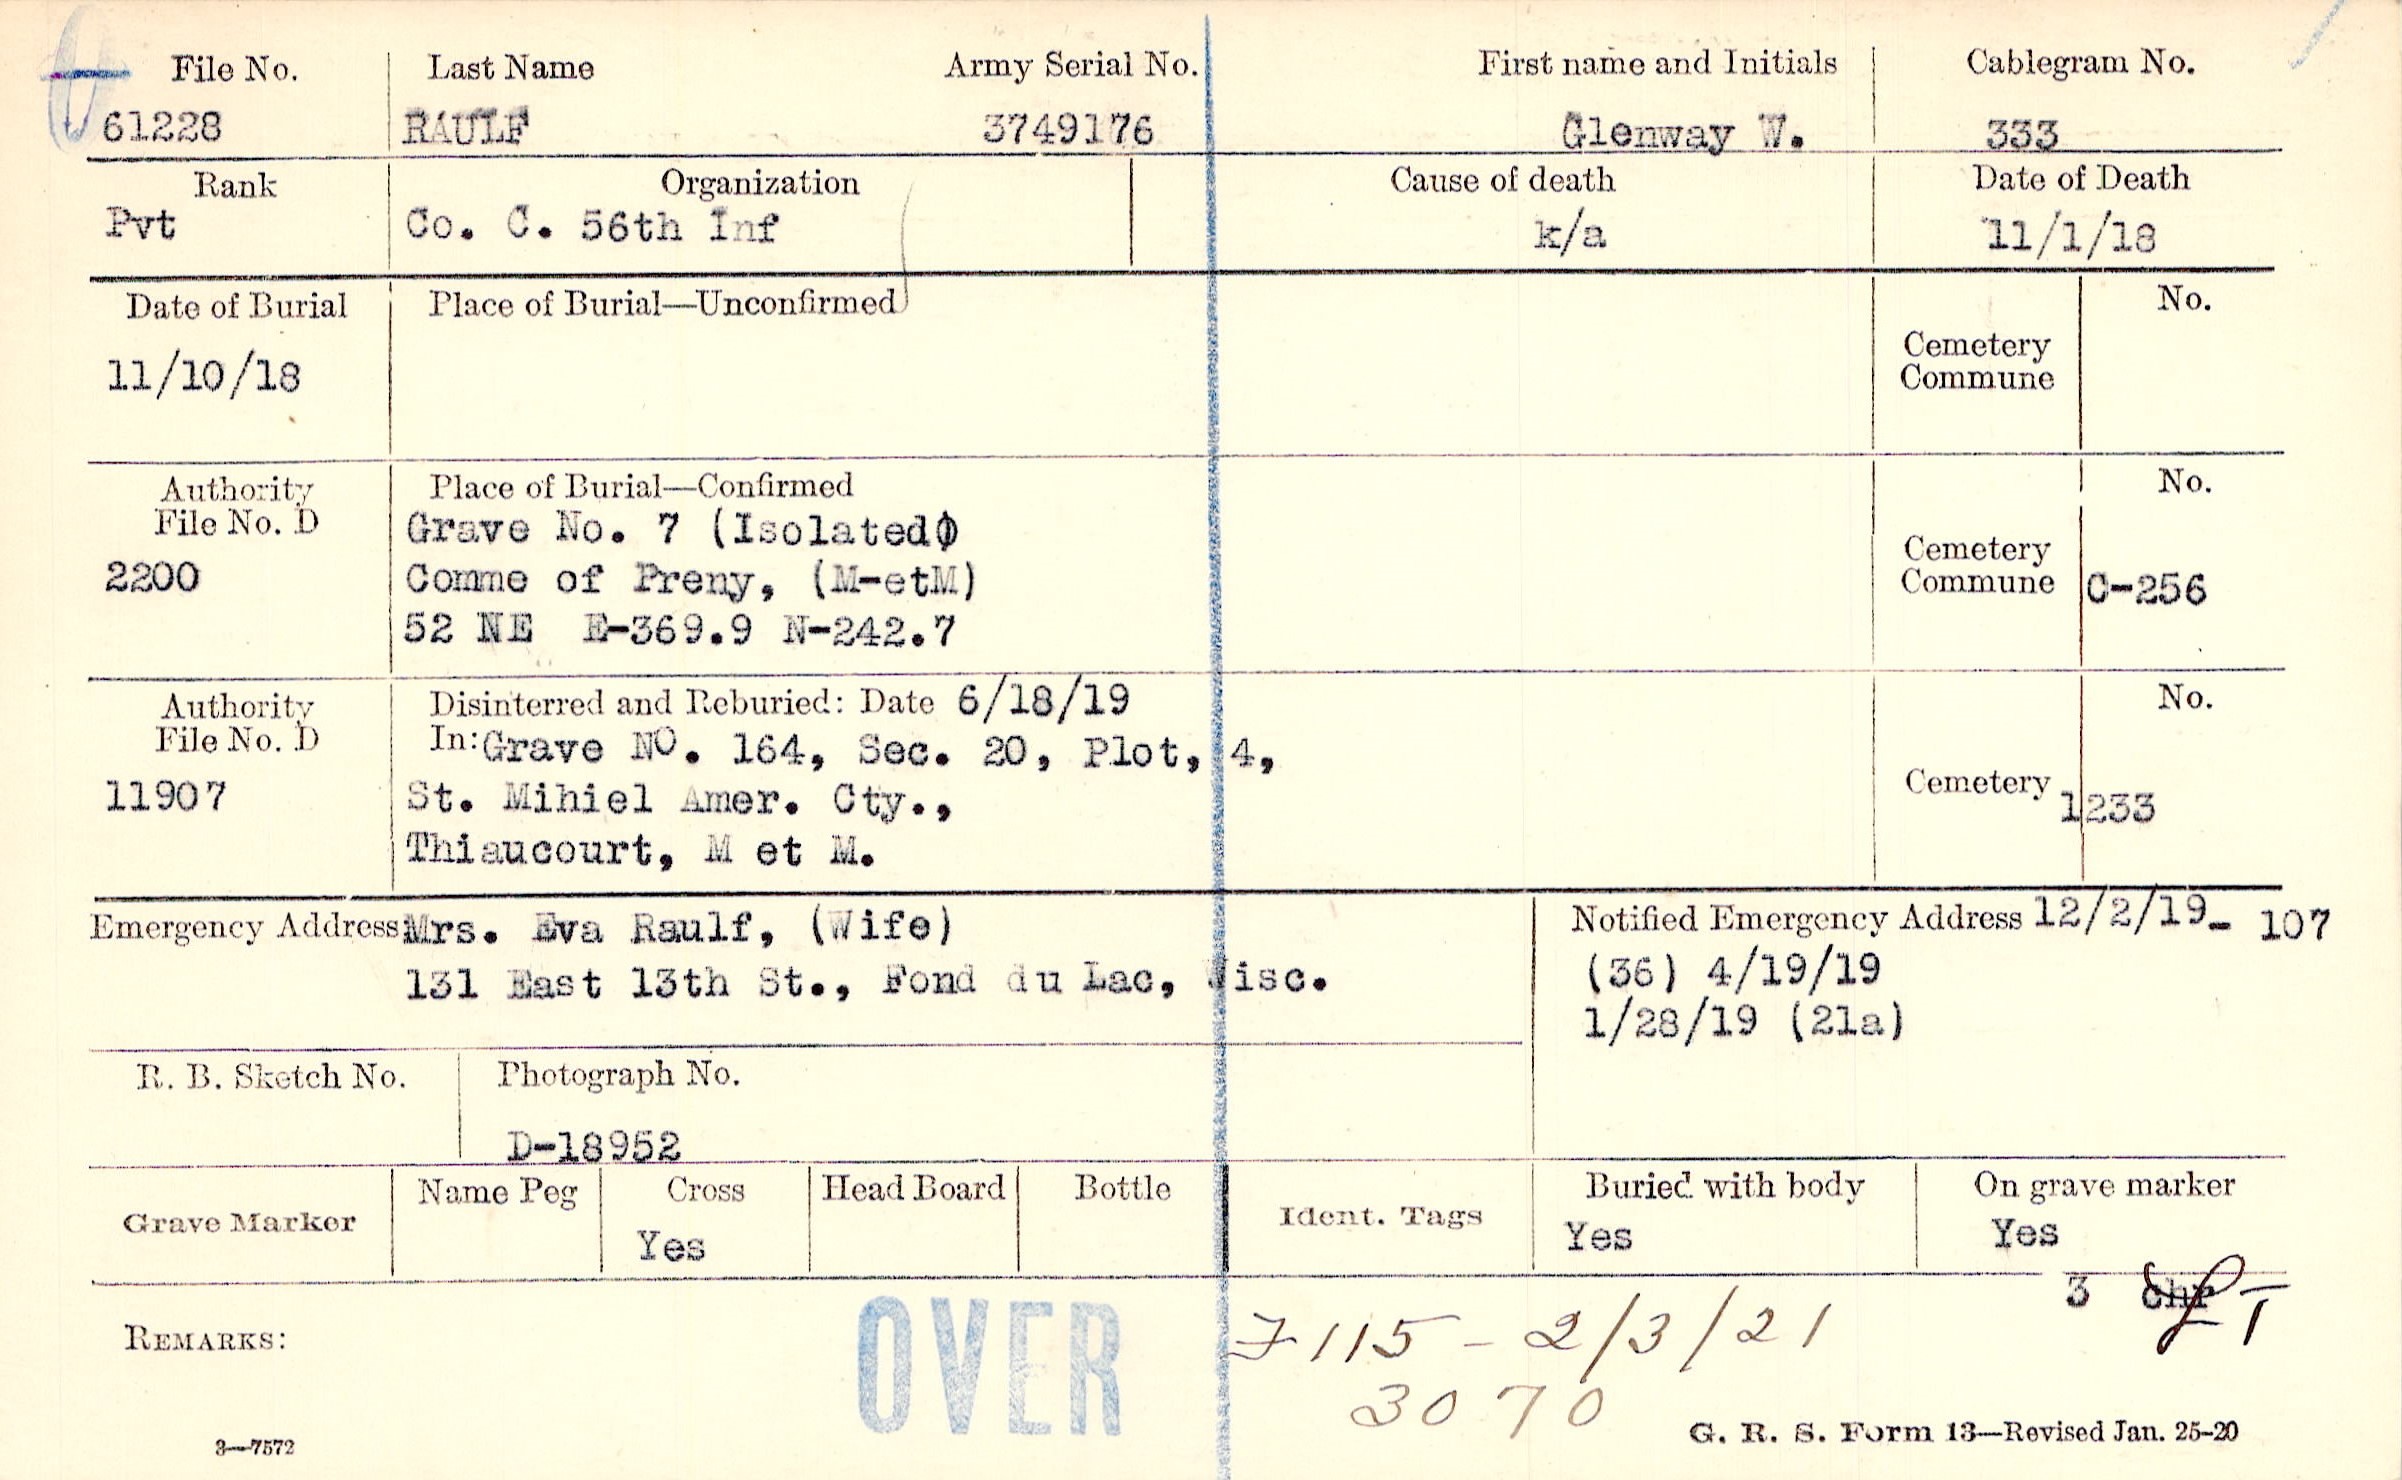 File No. Last Name Army Serial No. First name and Initials Cablegram No.
61228 RAULF 3749176 Glenway W. 333
Rank Organization Cause of death Date of Death
Pvt Co. C. 56th Inf k/a 11/1/18
Date of Burial Place of Burial—Unconfirmed No.
11/10/18 Cemetery
Commune
Authority Place of Burial—Confirmed No.
File No. D Grave No. 7 (Isolated)
2200 Comme of Preny, (M-etM) Cemetery
Commune C-256
52 NE E-369.9 N-242.7
Authority Disinterred and Reburied: Date 6/18/19 No.
File No. D In: Grave NO. 164, Sec. 20, Plot, 4,
11907 St. Mihiel Amer. Cty., Cemetery 1233
Thiaucourt, M et M.
Emergency Address Mrs. Eva Raulf, (Wife) Notified Emergency Address 12/2/19- 107
131 East 13th St., Fond du Lac, Wisc. (36) 4/19/19
1/28/19 (21a)
R. B. Sketch No. Photograph No.
D-18952
Grave Marker Name Peg Cross Head Board Bottle Ident. Tags Buried with body On grave marker
Yes Yes Yes
3 chr
REMARKS: OVER 7115 - 2/3/21
3070
3—7572 G. R. S. Form 13—Revised Jan. 25-20